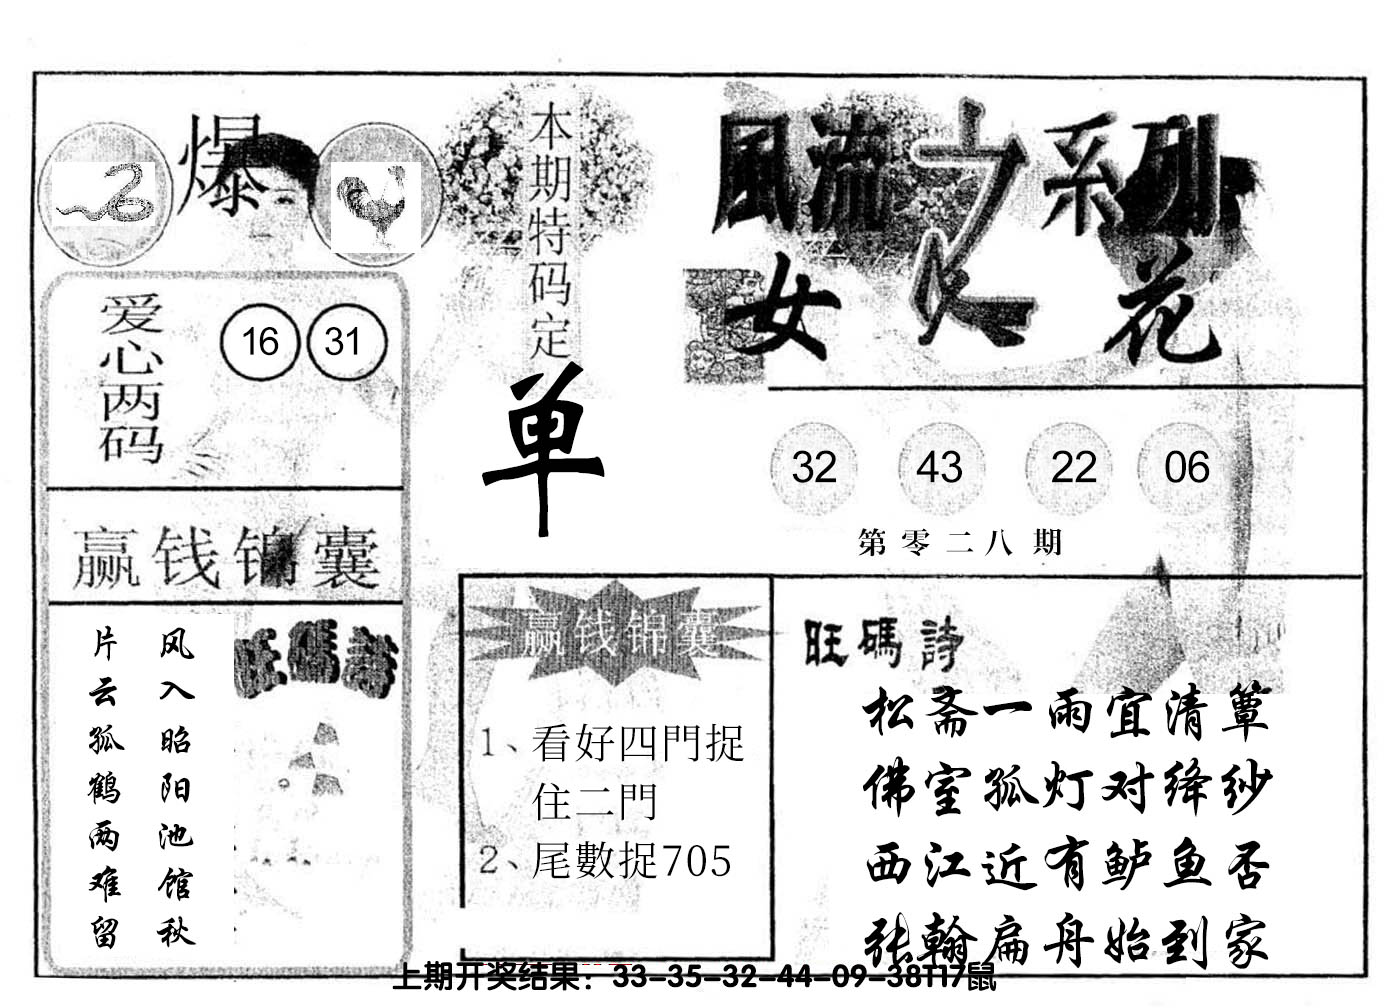 爆
爱心两码
16 31
赢钱锦囊
风入昭阳池馆秋
片云孤鹤两难留
旺碼詩
本期特码定
单
風流之系列
女人花
32 43 22 06
第零二八期
赢钱锦囊
1、看好四門捉
住二門
2、尾數捉705
旺碼詩
松斋一雨宜清簟
佛室孤灯对绛纱
西江近有鲈鱼否
张翰扁舟始到家
上期开奖结果：33-35-32-44-09-38T17鼠